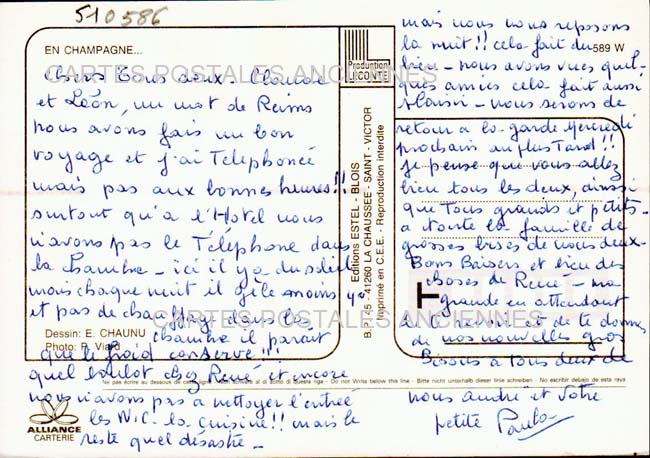 510586
EN CHAMPAGNE...
Chers Tous deux. Claude
et Léon, un mot de Reims
nous avons fais un bon
voyage et j'ai Téléphonée
mais pas aux bonnes heures!!
surtout qu'a l'Hotel nous
n'avons pas le Téléphone dans
la Chambre - ici il y a du soleil
mais chaque nuit il gèle moins
et pas de chauffage dans les
chambre il parait
que le froid conserve!!!
quel boulot chez René et encore
nous n'avons pas a nettoyer l'entrée
les W.C. la cuisine!! mais le
reste quel désastre -
Dessin: E. CHAUNU
Photo: R. Viard
ALLIANCE
CARTERIE
Production
LECONTE
Editions ESTEL - BLOIS
B.P. 45 - 41260 LA CHAUSSEE - SAINT - VICTOR
Imprimé en C.E.E. - Reproduction interdite
589 W
mais nous nous reposons
la nuit!! cela fait du
bien - nous avons vues quel-
ques amies cela fait aussi
plaisir - nous serons de
retour a la garde Mercredi
prochain au plus Tard!!
je pense que vous allez
bien tous les deux, ainsi
que Tous grands et petits -
a toute la famille de
grosses bises de nous deux -
Bons Baisers et bien des
choses de René - ma
grande en attendant
de revoir et de te donner
de nos nouvelles gros
Bisous a tous deux de
nous andre et Votre
petite Paula
Ne pas écrire au dessous de cette ligne - Non scrivere al di sotto di questa riga - Do not Write below this line - Bitte nicht unterhalb dieser linie schreiben - No escribir debajo de esta raya
CARTES POSTALES ANCIENNES
CARTES POSTALES ANCIENNES